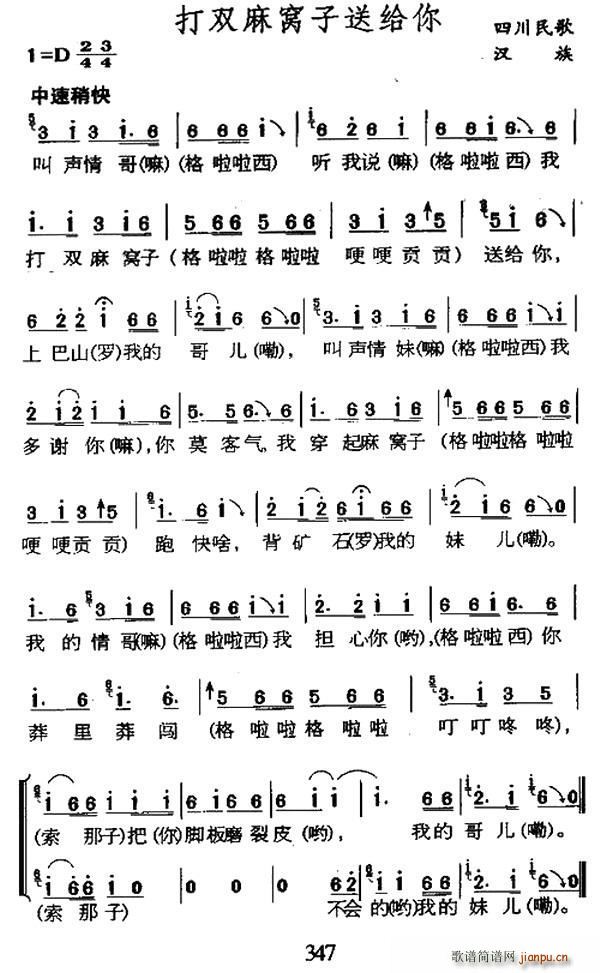 打双麻窝子送给你
四川民歌
1=D 2/4 3/4
汉 族
中速稍快
叫声情哥(嘛)(格啦啦西) 听我说(嘛)(格啦啦西)我
打双麻窝子(格啦啦格啦啦 哽哽贡贡)送给你,
上巴山(罗)我的 哥儿(嘞), 叫声情妹(嘛)(格啦啦西)我
多谢你(嘛),你莫客气,我穿起麻窝子(格啦啦格啦啦
哽哽贡贡) 跑快啥, 背矿石(罗)我的 妹儿(嘞)。
我的情哥(嘛)(格啦啦西)我 担心你(哟),(格啦啦西)你
莽里莽闯 (格啦啦格啦啦 叮叮咚咚),
(索那子)把(你)脚板磨裂皮(哟), 我的哥儿(嘞)。
(索那子) 不会的(哟)我的妹儿(嘞)。
347
歌谱简谱网
jianpu.cn